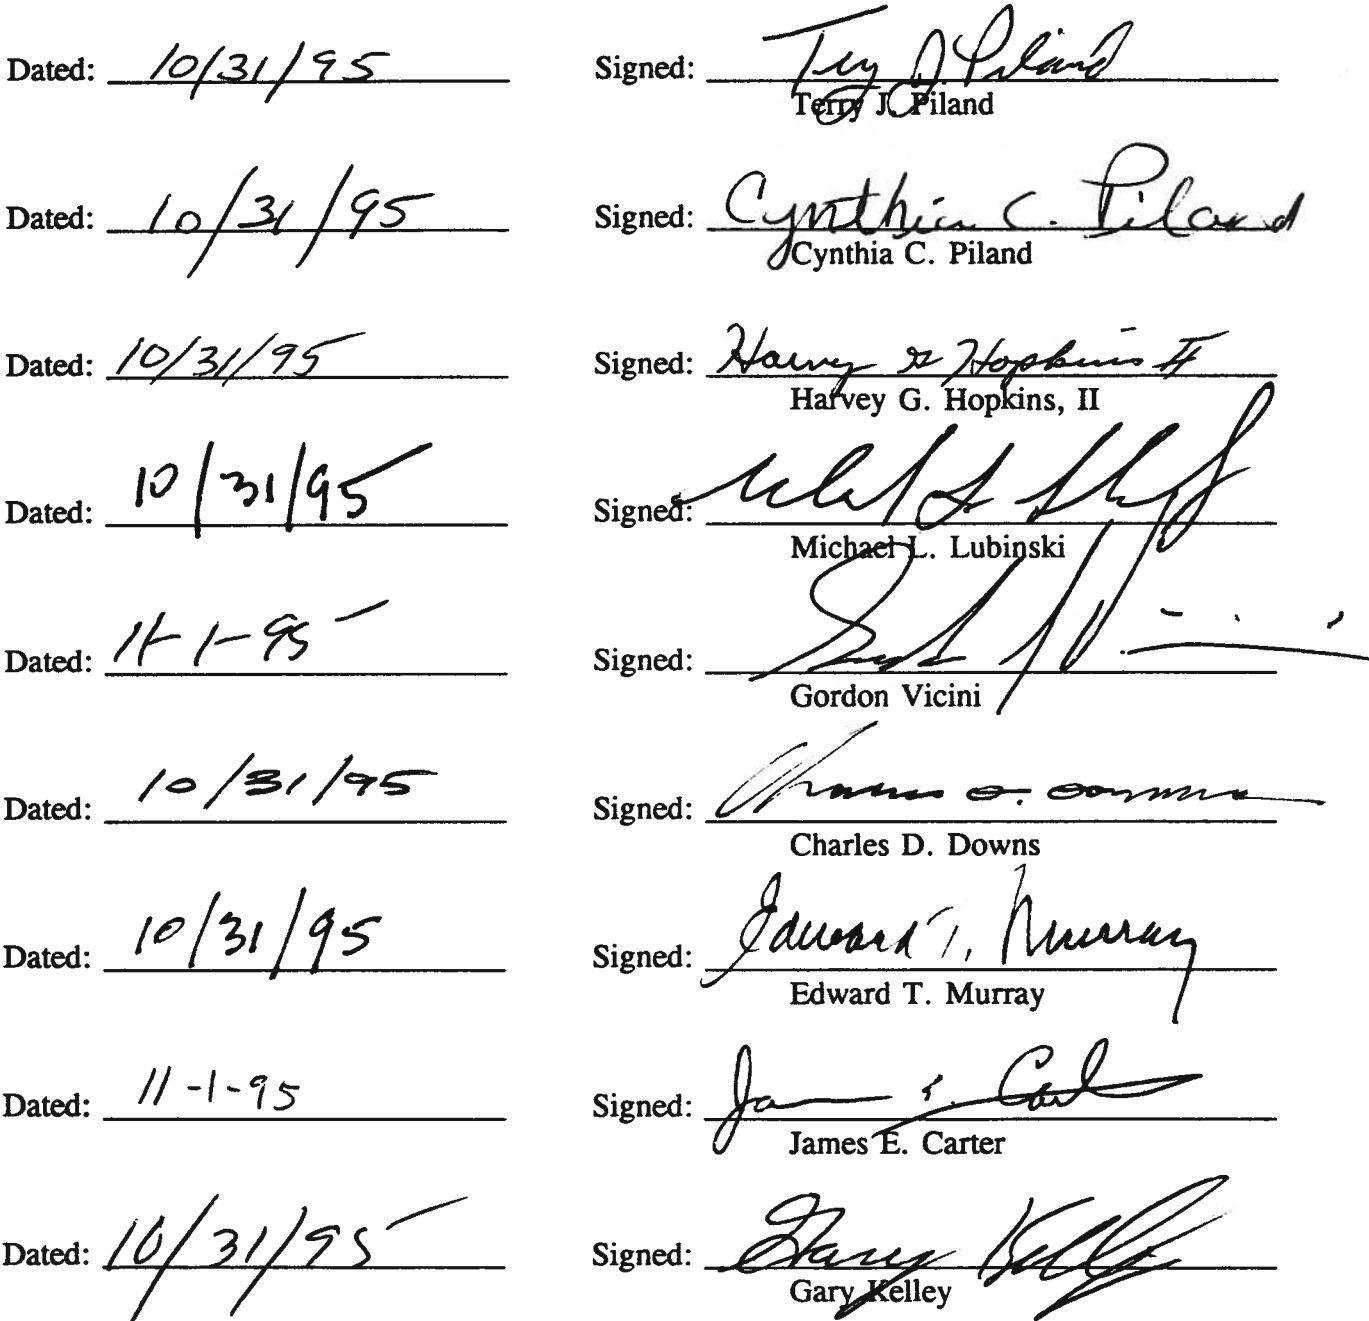 Dated: 10/31/95 Signed: Terry J. Piland
Terry J. Piland
Dated: 10/31/95 Signed: Cynthia C. Piland
Cynthia C. Piland
Dated: 10/31/95 Signed: Harvey G Hopkins II
Harvey G. Hopkins, II
Dated: 10/31/95 Signed:
Michael L. Lubinski
Dated: 11-1-95 Signed:
Gordon Vicini
Dated: 10/31/95 Signed:
Charles D. Downs
Dated: 10/31/95 Signed: Edward T. Murray
Edward T. Murray
Dated: 11-1-95 Signed: James E. Carter
James E. Carter
Dated: 10/31/95 Signed: Gary Kelley
Gary Kelley